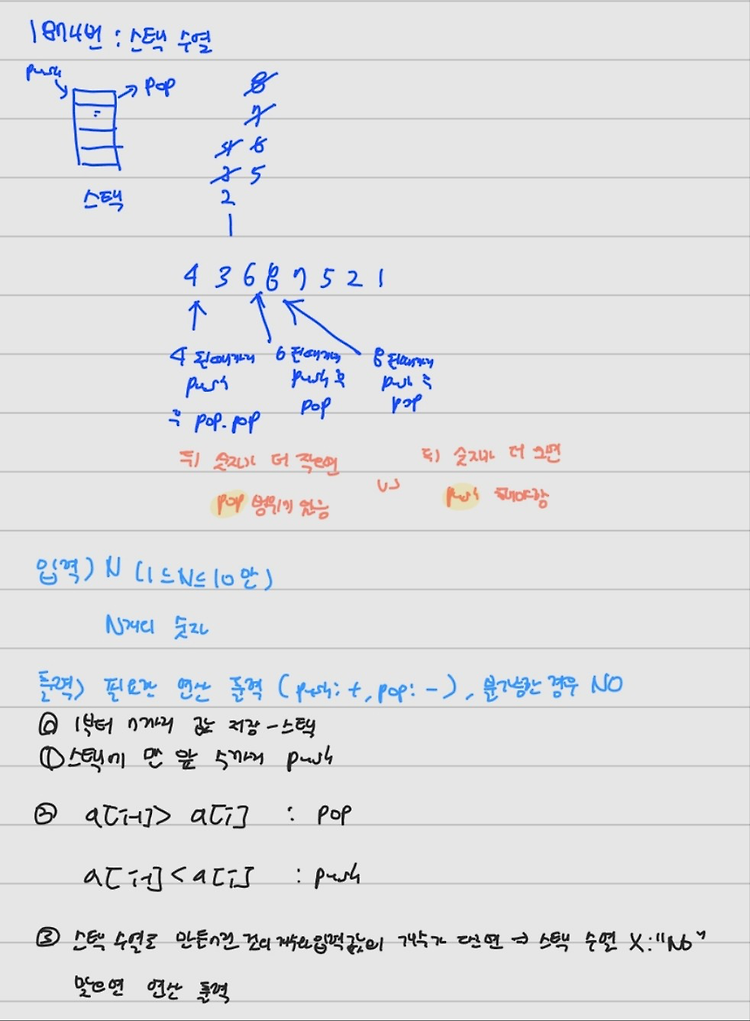 1874번 : 스택 수열
push
pop
스택
8
7
4 6
3 5
2
1
4 3 6 8 7 5 2 1
4 될때까지 6 될때까지 8 될때까지
push push 후 push 후
후 pop. pop pop pop
뒤 숫자가 더 작으면 vs 뒤 숫자가 더 크면
pop 행위가 있음 push 해야함
입력) N (1≤N≤10만)
N개의 숫자
출력) 필요한 연산 출력 (push: +, pop: -), 불가능한 경우 NO
⓪ 1부터 n까지 값 저장 - 스택
① 스택에 맨 앞 수까지 push
② a[i-1] > a[i] : pop
a[i-1] < a[i] : push
③ 스택 수열로 만들어진 것의 개수와 입력값의 개수가 다르면 → 스택 수열 X : "No"
맞으면 연산 출력